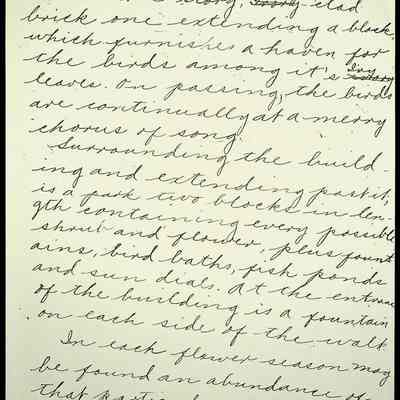 story, ivory clad
brick one extending a block,
which furnishes a haven for
the birds among it's Ivy
leaves. On passing, the birds
are continually at a merry
chorus of song.
Surrounding the build-
ing and extending past it,
is a park two blocks in len-
gth containing every possible
shrub and flower, plus fount
ains, bird baths, fish ponds
and sun dials. At the entrance
of the building is a fountain
on each side of the walk.
In each flower season may
be found an abundance of
that